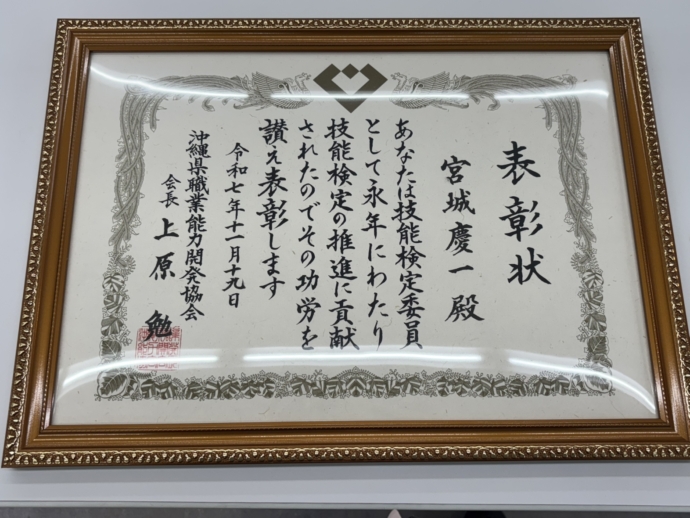 表彰状
宮城慶一殿
あなたは技能検定委員
として永年にわたり
技能検定の推進に貢献
されたのでその功労を
讃え表彰します
令和七年十一月十九日
沖縄県職業能力開発協会
会長 上原 勉